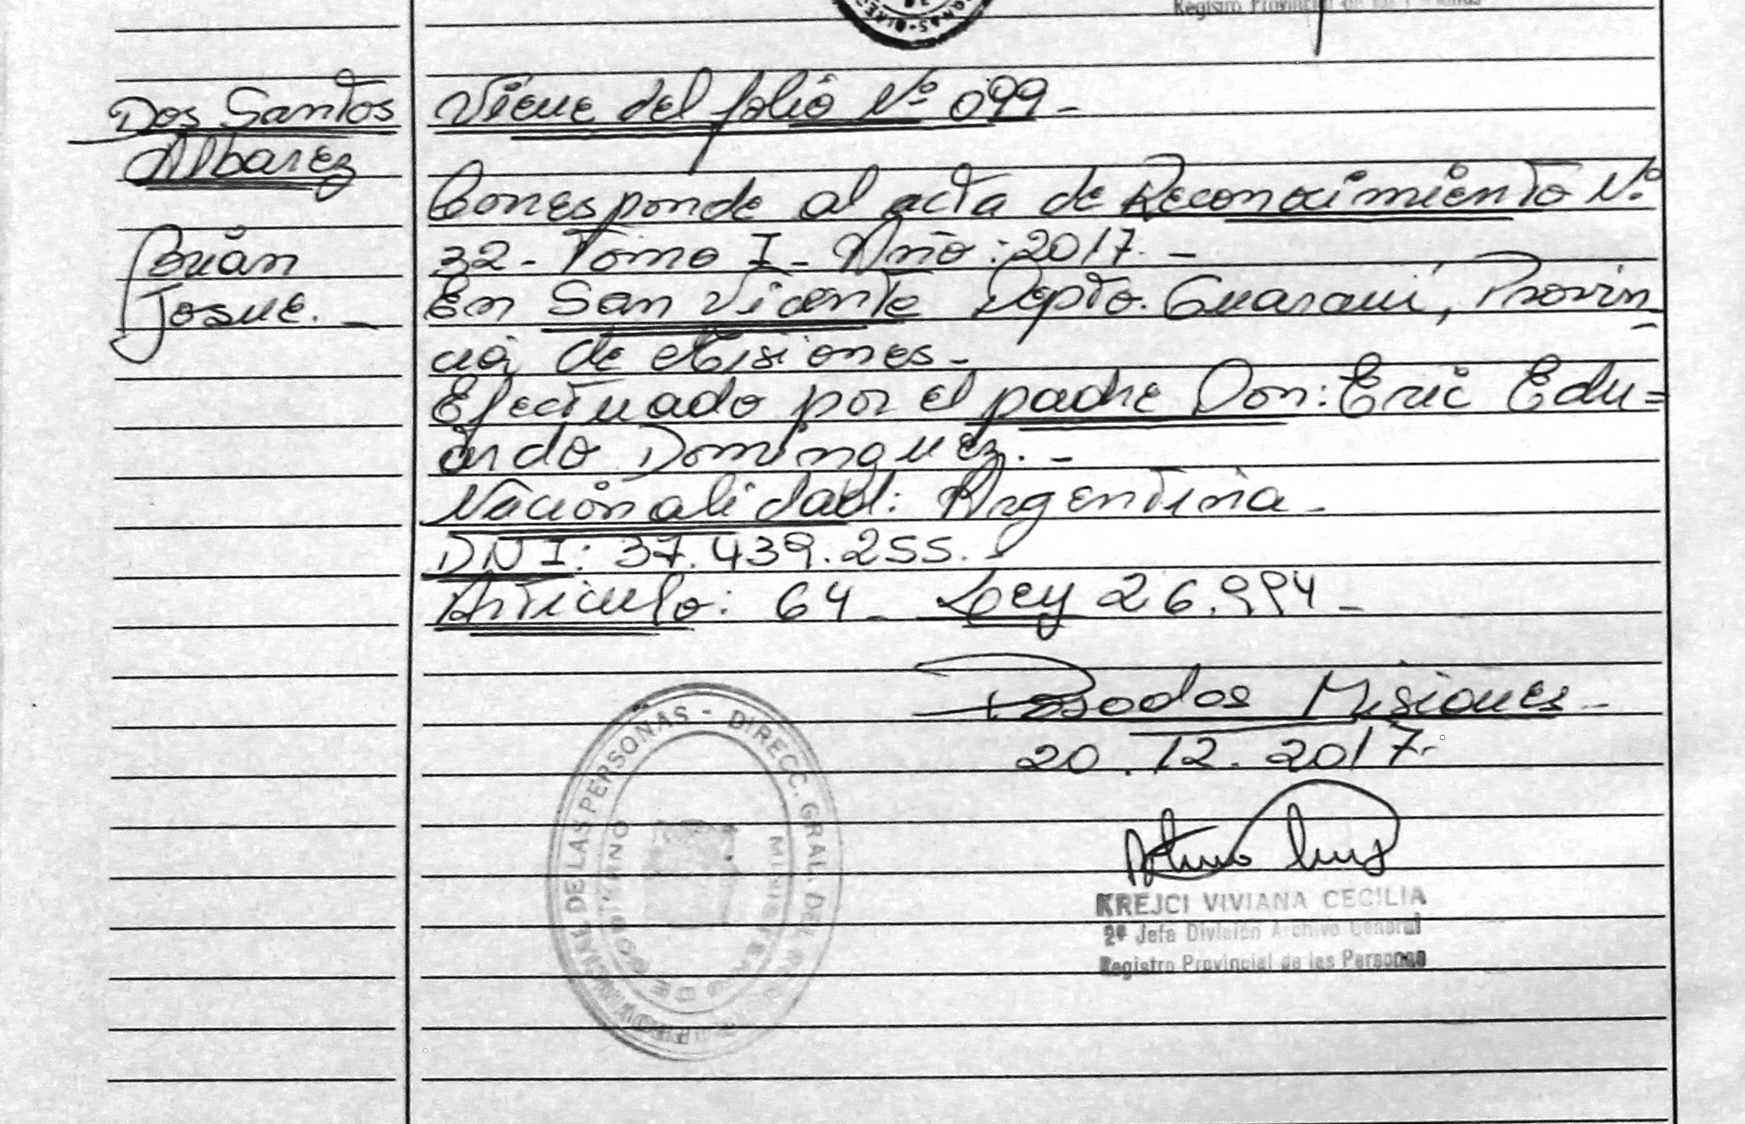 Registro Provincial de las Personas
Dos Santos
Albarez
Brián
Josue. -
Viene del folio Nº 099 -
Corresponde al acta de Reconocimiento Nº
32 - Tomo I - Año : 2017. -
En San Vicente Depto. Guaraní, Provin
cia de Misiones -
Efectuado por el padre Don: Eric Edu=
ardo Dominguez. -
Nacionalidad: Argentina -
DNI: 37.439.255. -
Articulo: 64 - Ley 26.994 -
Posadas Misiones -
20.12.2017.-
KREJCI VIVIANA CECILIA
2ª Jefa División Archivo General
Registro Provincial de las Personas
DE LAS PERSONAS - DIRECC. GRAL. DEL
MINISTERIO DE GOBIERNO